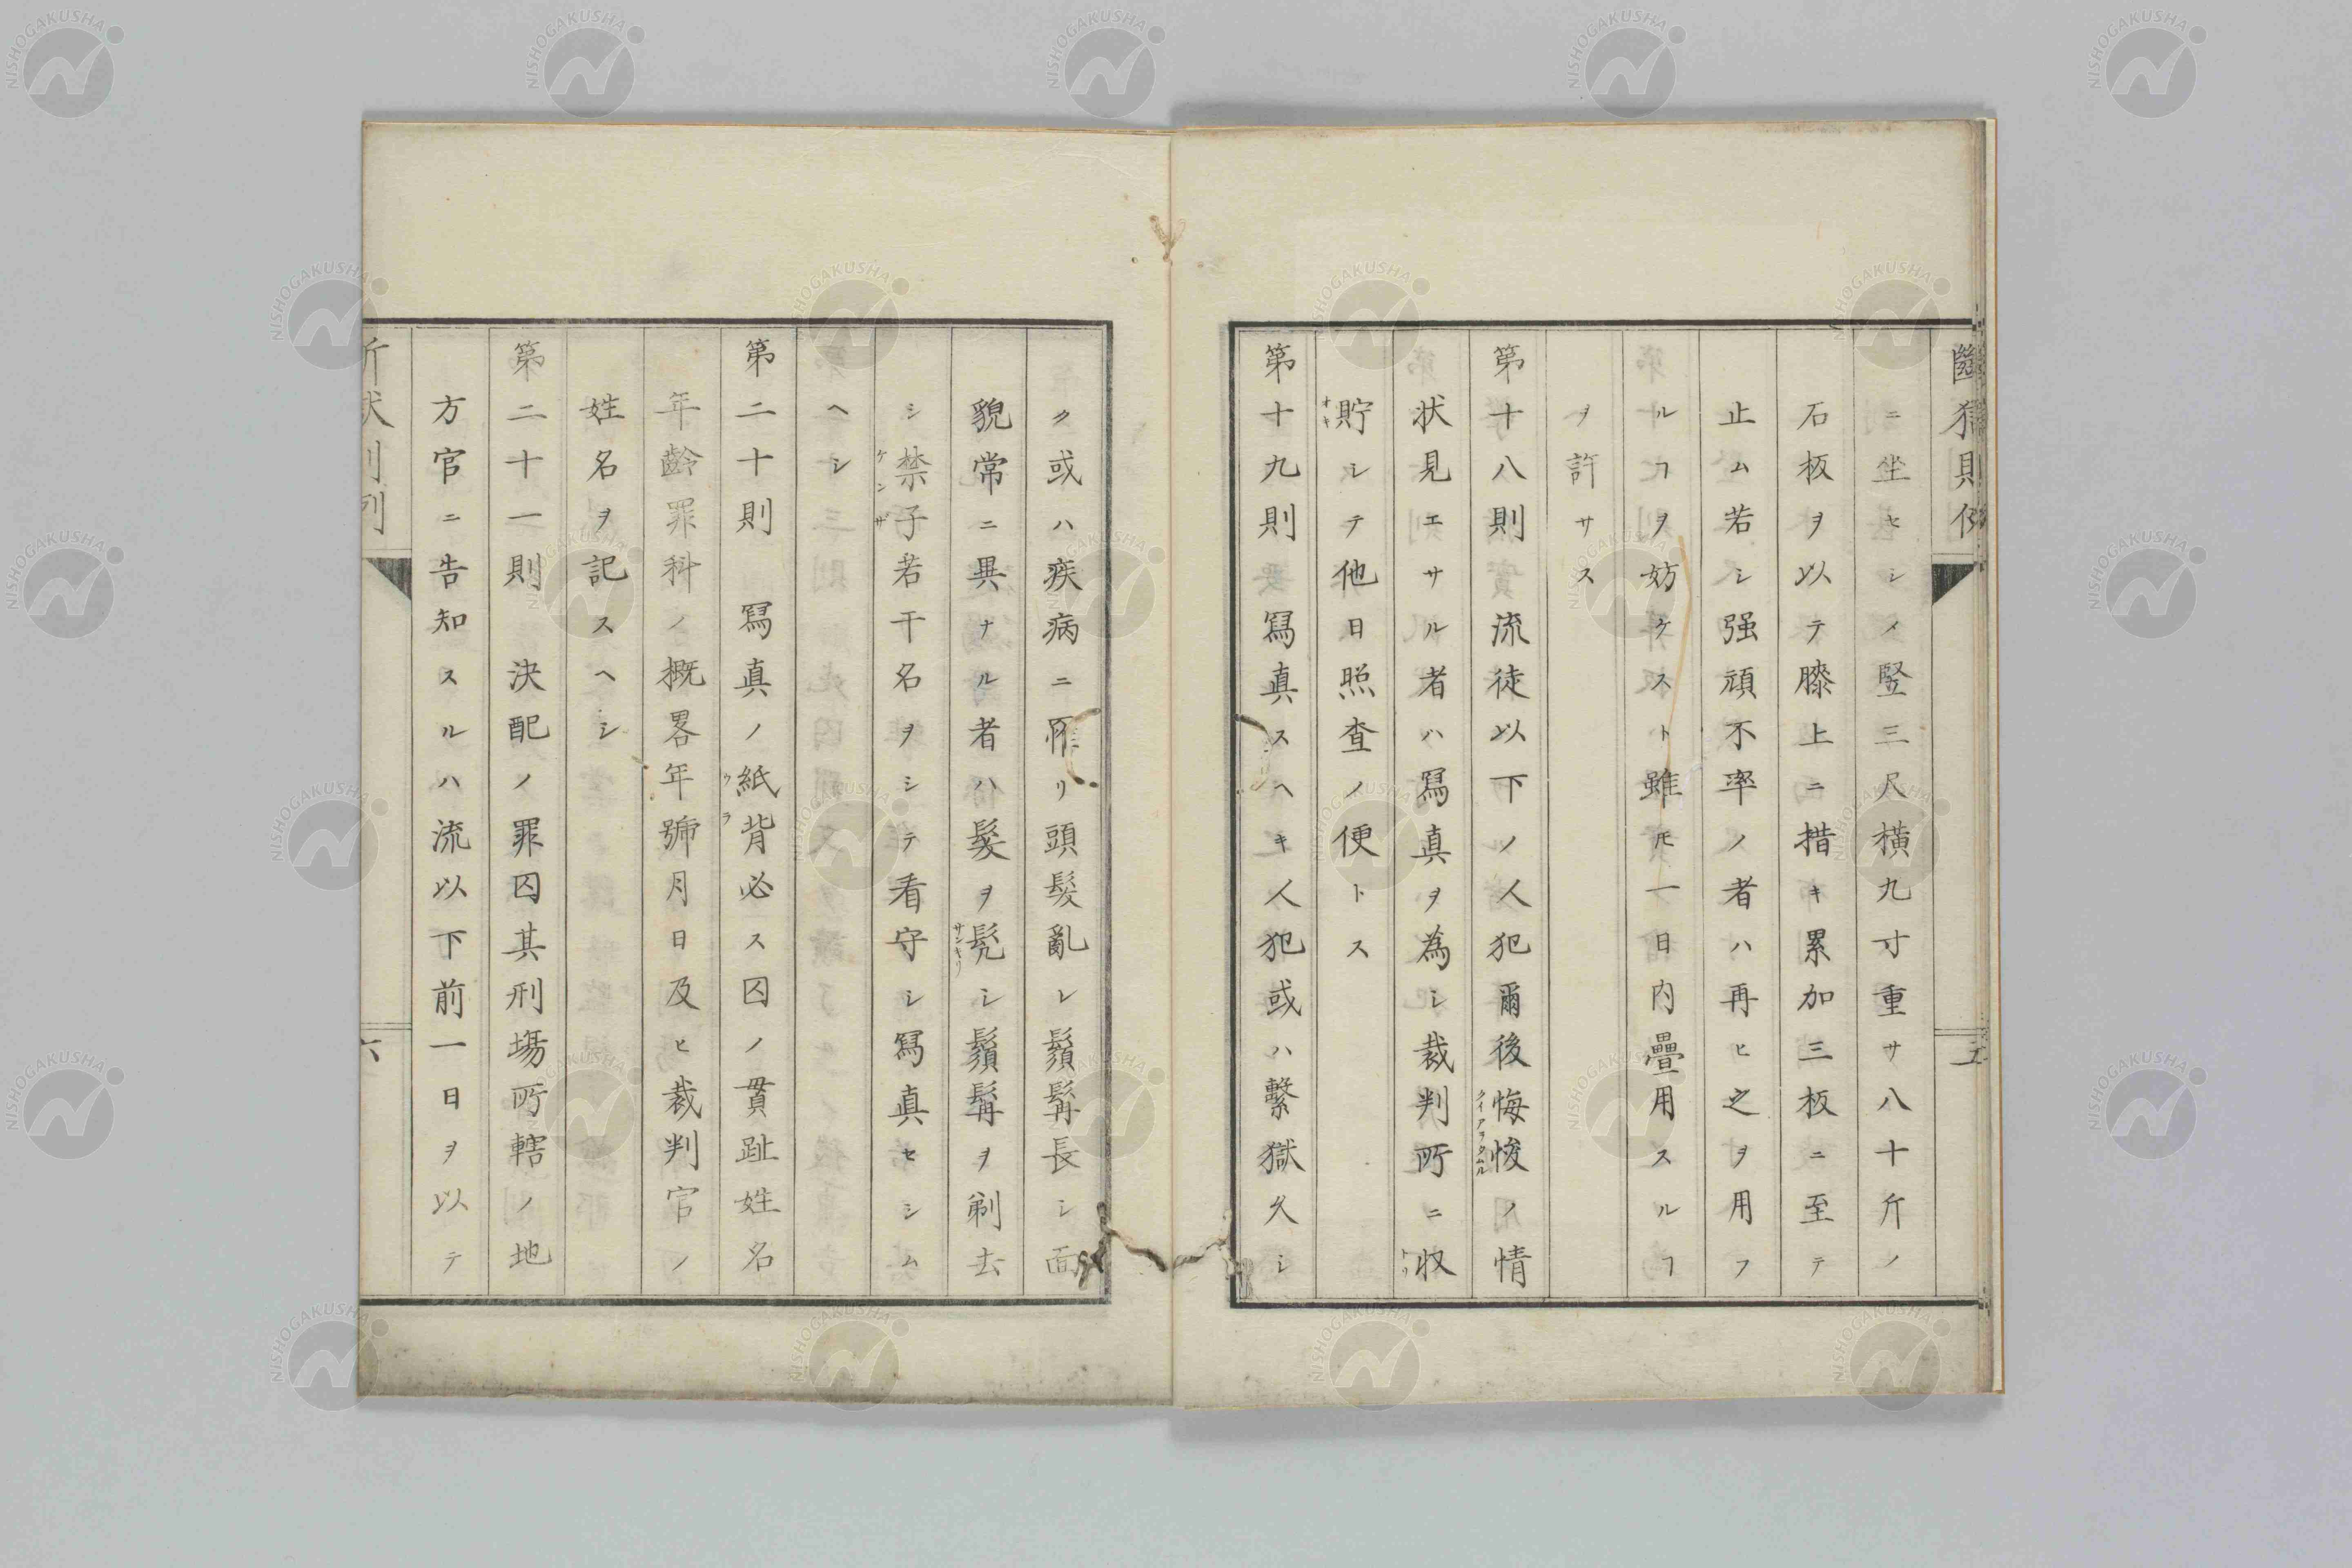 斷獄則例
五
ニ坐セシメ竪三尺横九寸重サ八十斤ノ
石板ヲ以テ膝上ニ措キ累加三板ニ至テ
止ム若シ强頑不率ノ者ハ再ヒ之ヲ用フ
ルヿヲ妨ケスト雖𪜈一日内疊用スルヿ
ヲ許サス
第十八則 流徒以下ノ人犯爾後悔悛ノ情
クイアラタムル
状見エサル者ハ冩真ヲ為シ裁判所ニ収
トリ
貯シテ他日照査ノ便トス
オキ
第十九則 冩真スヘキ人犯或ハ繫獄久シ
ク或ハ疾病ニ罹リ頭髮亂レ鬚髯長シ面
貌常ニ異ナル者ハ髮ヲ髡シ鬚髯ヲ剃去
サンキリ
シ禁子若干名ヲシテ看守シ冩真セシム
ケンザ
ヘシ
第二十則 冩真ノ紙背必ス囚ノ貫趾姓名
ウラ
年齡罪科ノ概畧年號月日及ヒ裁判官ノ
姓名ヲ記スヘシ
第二十一則 決配ノ罪囚其刑塲所轄ノ地
方官ニ告知スルハ流以下前一日ヲ以テ
六
NISHOGAKUSHA